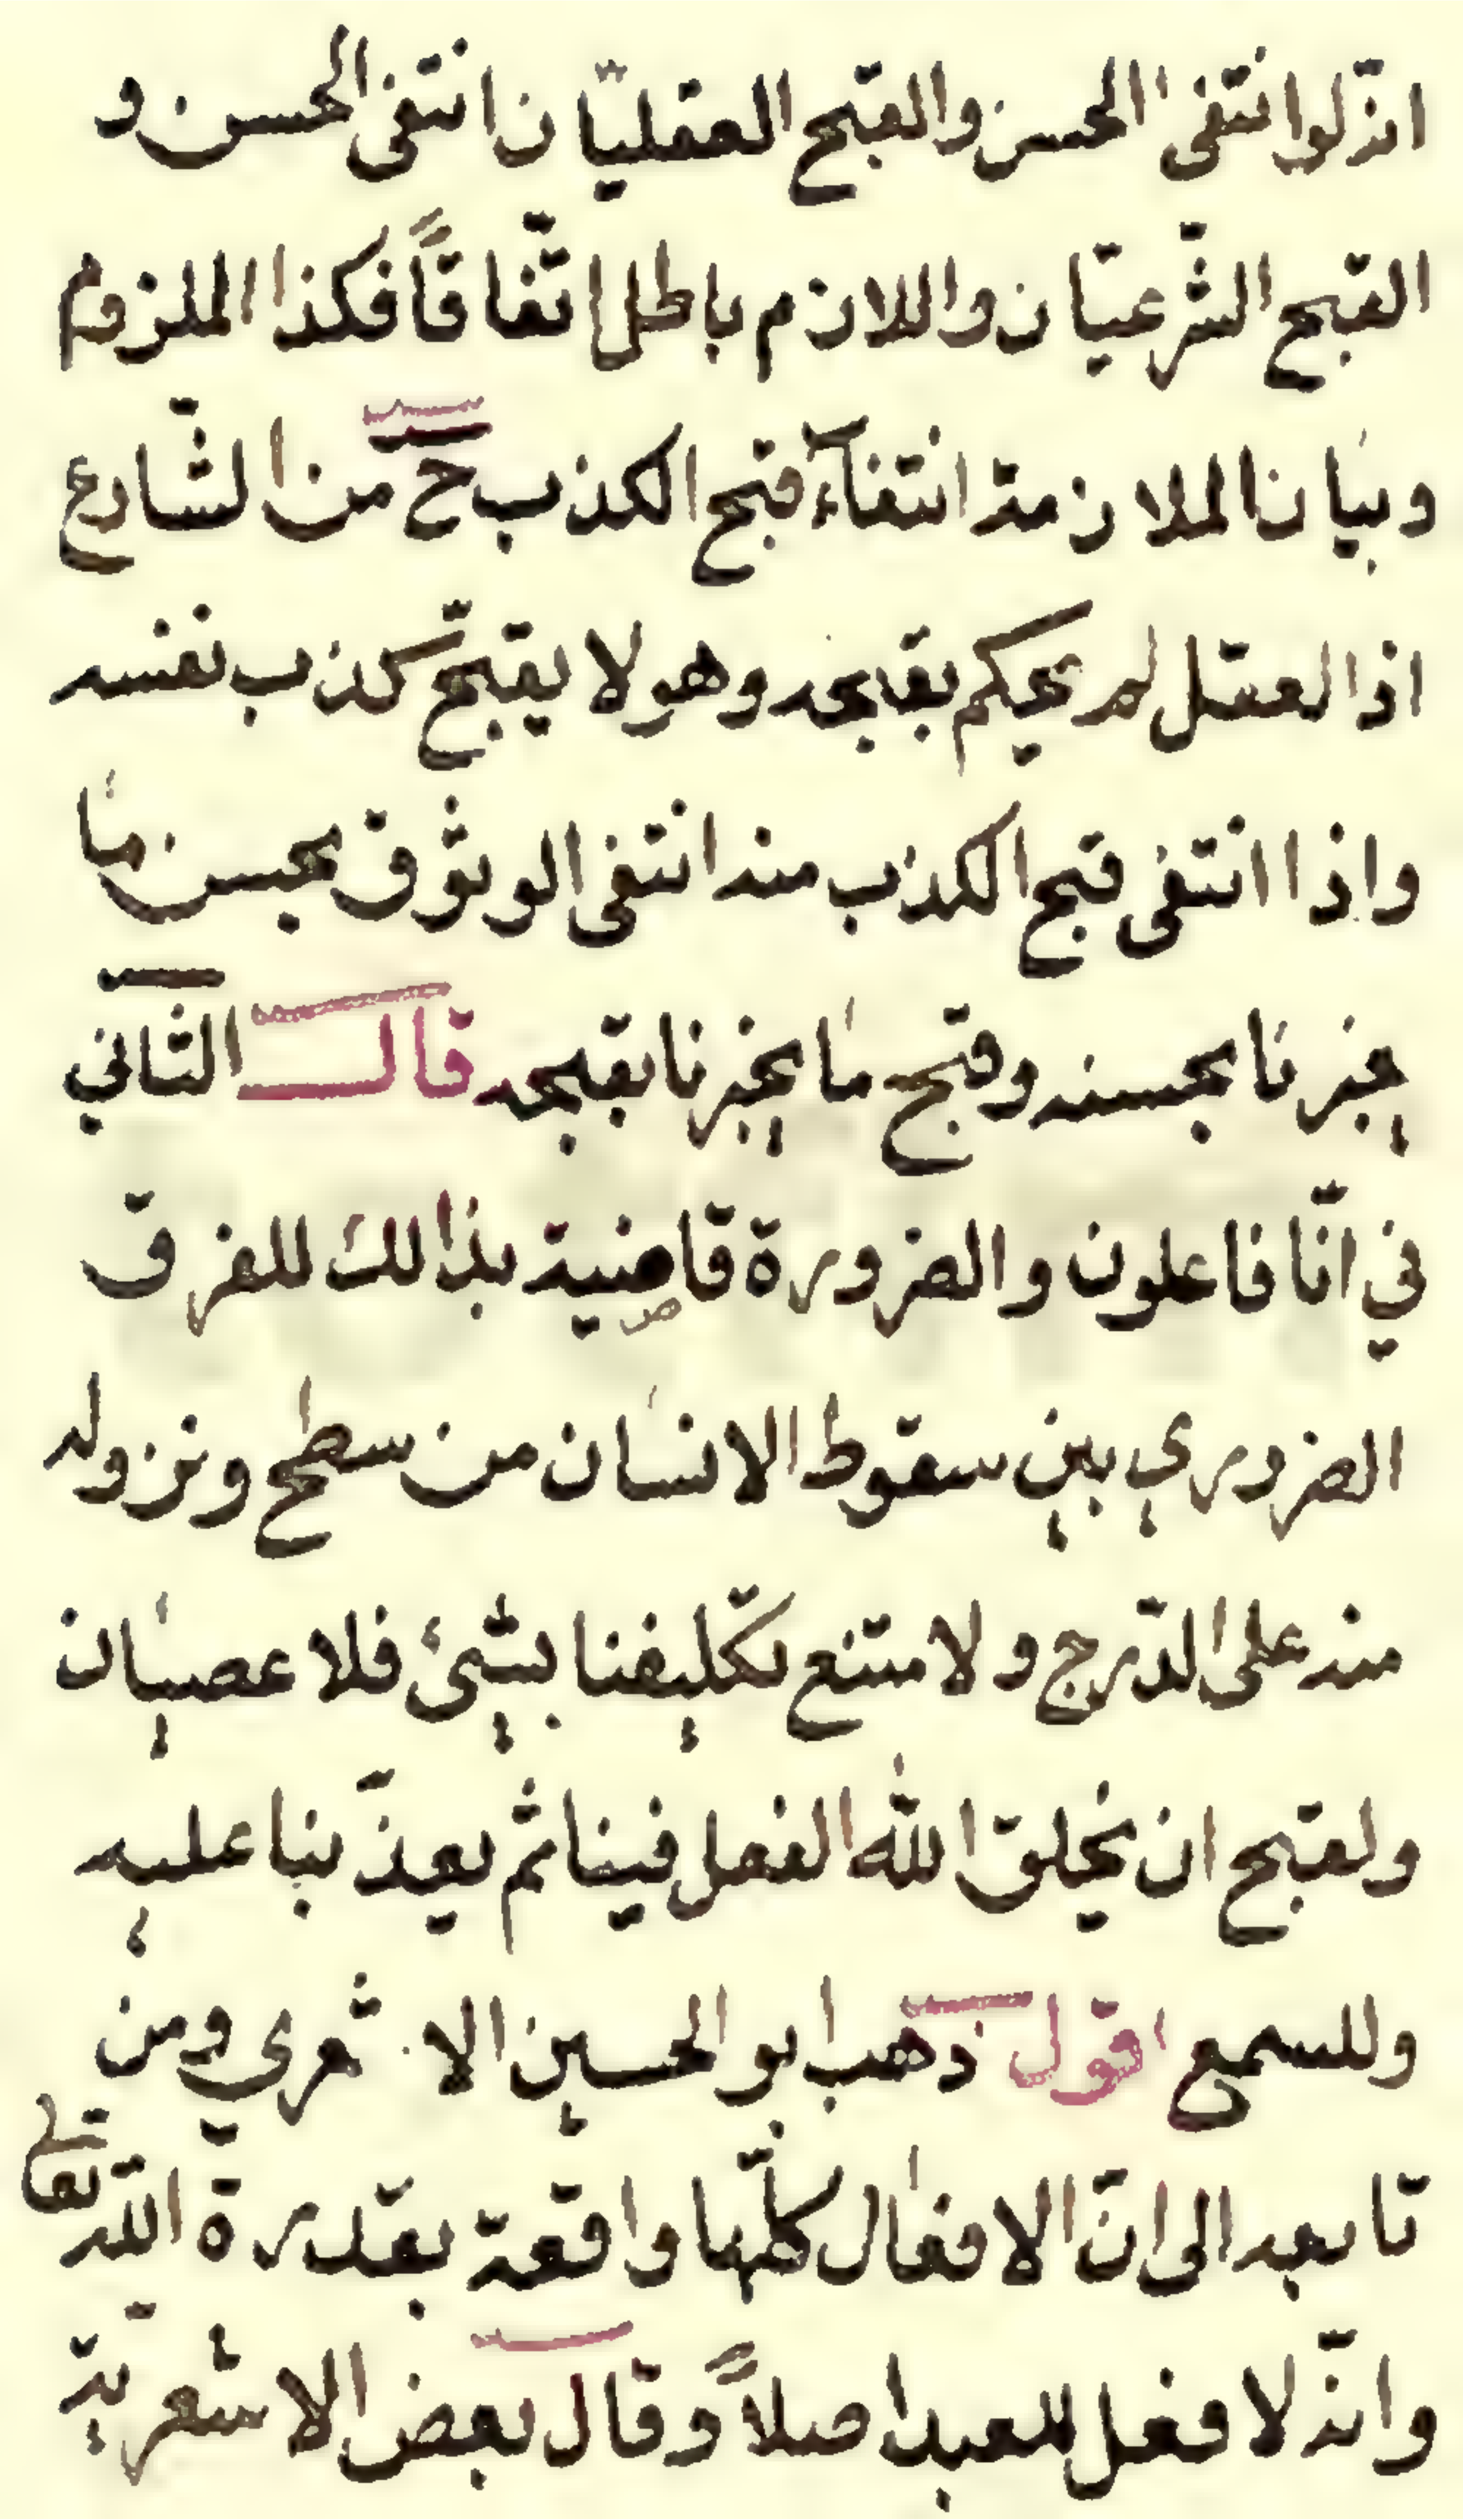 انّه لو انتفى الحسن والقبح العقليّان انتفى الحسن و
القبح الشّرعيّان واللازم باطل اتّفاقاً فكذا الملزوم
وبيان الملازمة انتفآء قبح الكذب ح من الشّارع
اذ العقل لم يحكم بقابحه وهو لا يقبّح كذب نفسه
واذا انتفى قبح الكذب منه انتفى الوثوق بحسن ما
يخبرنا بحسنه وقبح ما يخبرنا بقبحه قال الثّاني
في انّا فاعلون والضرورة قاضية بذالك للفرق
الضروري بين سقوط الانسان من سطح ونزوله
منه على الدّرج ولامتنع تكليفنا بشيئ فلا عصيان
ولقبح ان يخلق الله الفعل فينا ثم يعذّبنا عليه
وللسمع اقول ذهب ابو الحسين الاشعري ومن
تابعه الى انّ الافعال كلّها واقعة بقدرة الله تعالى
وانّه لا فعل للعبد اصلاً وقال بعض الاشعريّة